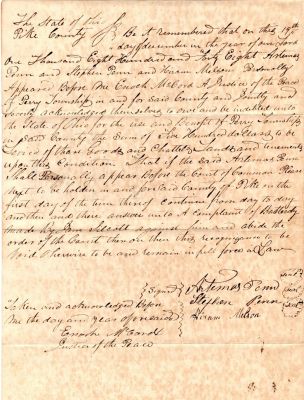 The State of Ohio
Pike County
Be it remembered that on this 19th
day december in the year of our Lord
One Thousand Eight Hundred and Forty Eight Artemas
Penn and Stephen Penn and Hiram Melson Personally
Appeared Before Me Enoch McCord A Justice of the Peace
of Perry Township in and for Said County and Jointly and
Severly acknowledged themselves to owe and be indebted unto
the State of Ohio for the use and Benefit of Perry Township
Said County the Sum of Five Hundred dollars to be
Levied of thair Goods and Chattels Lands and tenements
upon this Condition That if the Said Artemas Penn
Shall Personally appear Before the Court of Common Pleas
next to be holden in and for Said County of Pike on the
first day of the term thereof continue from day to day
and then and there answer unto A Complaint of Bastardy
made by against him and abide the
order of the Court thereon then this recognizance to be
Void Otherwise to be and remain in full force in Law
Signed
Artemas Penn
Stephen Penn
Hiram Melson
Taken and acknowledged Before
me the day and year aforesaid
Enoch McCord
Justice of the Peace